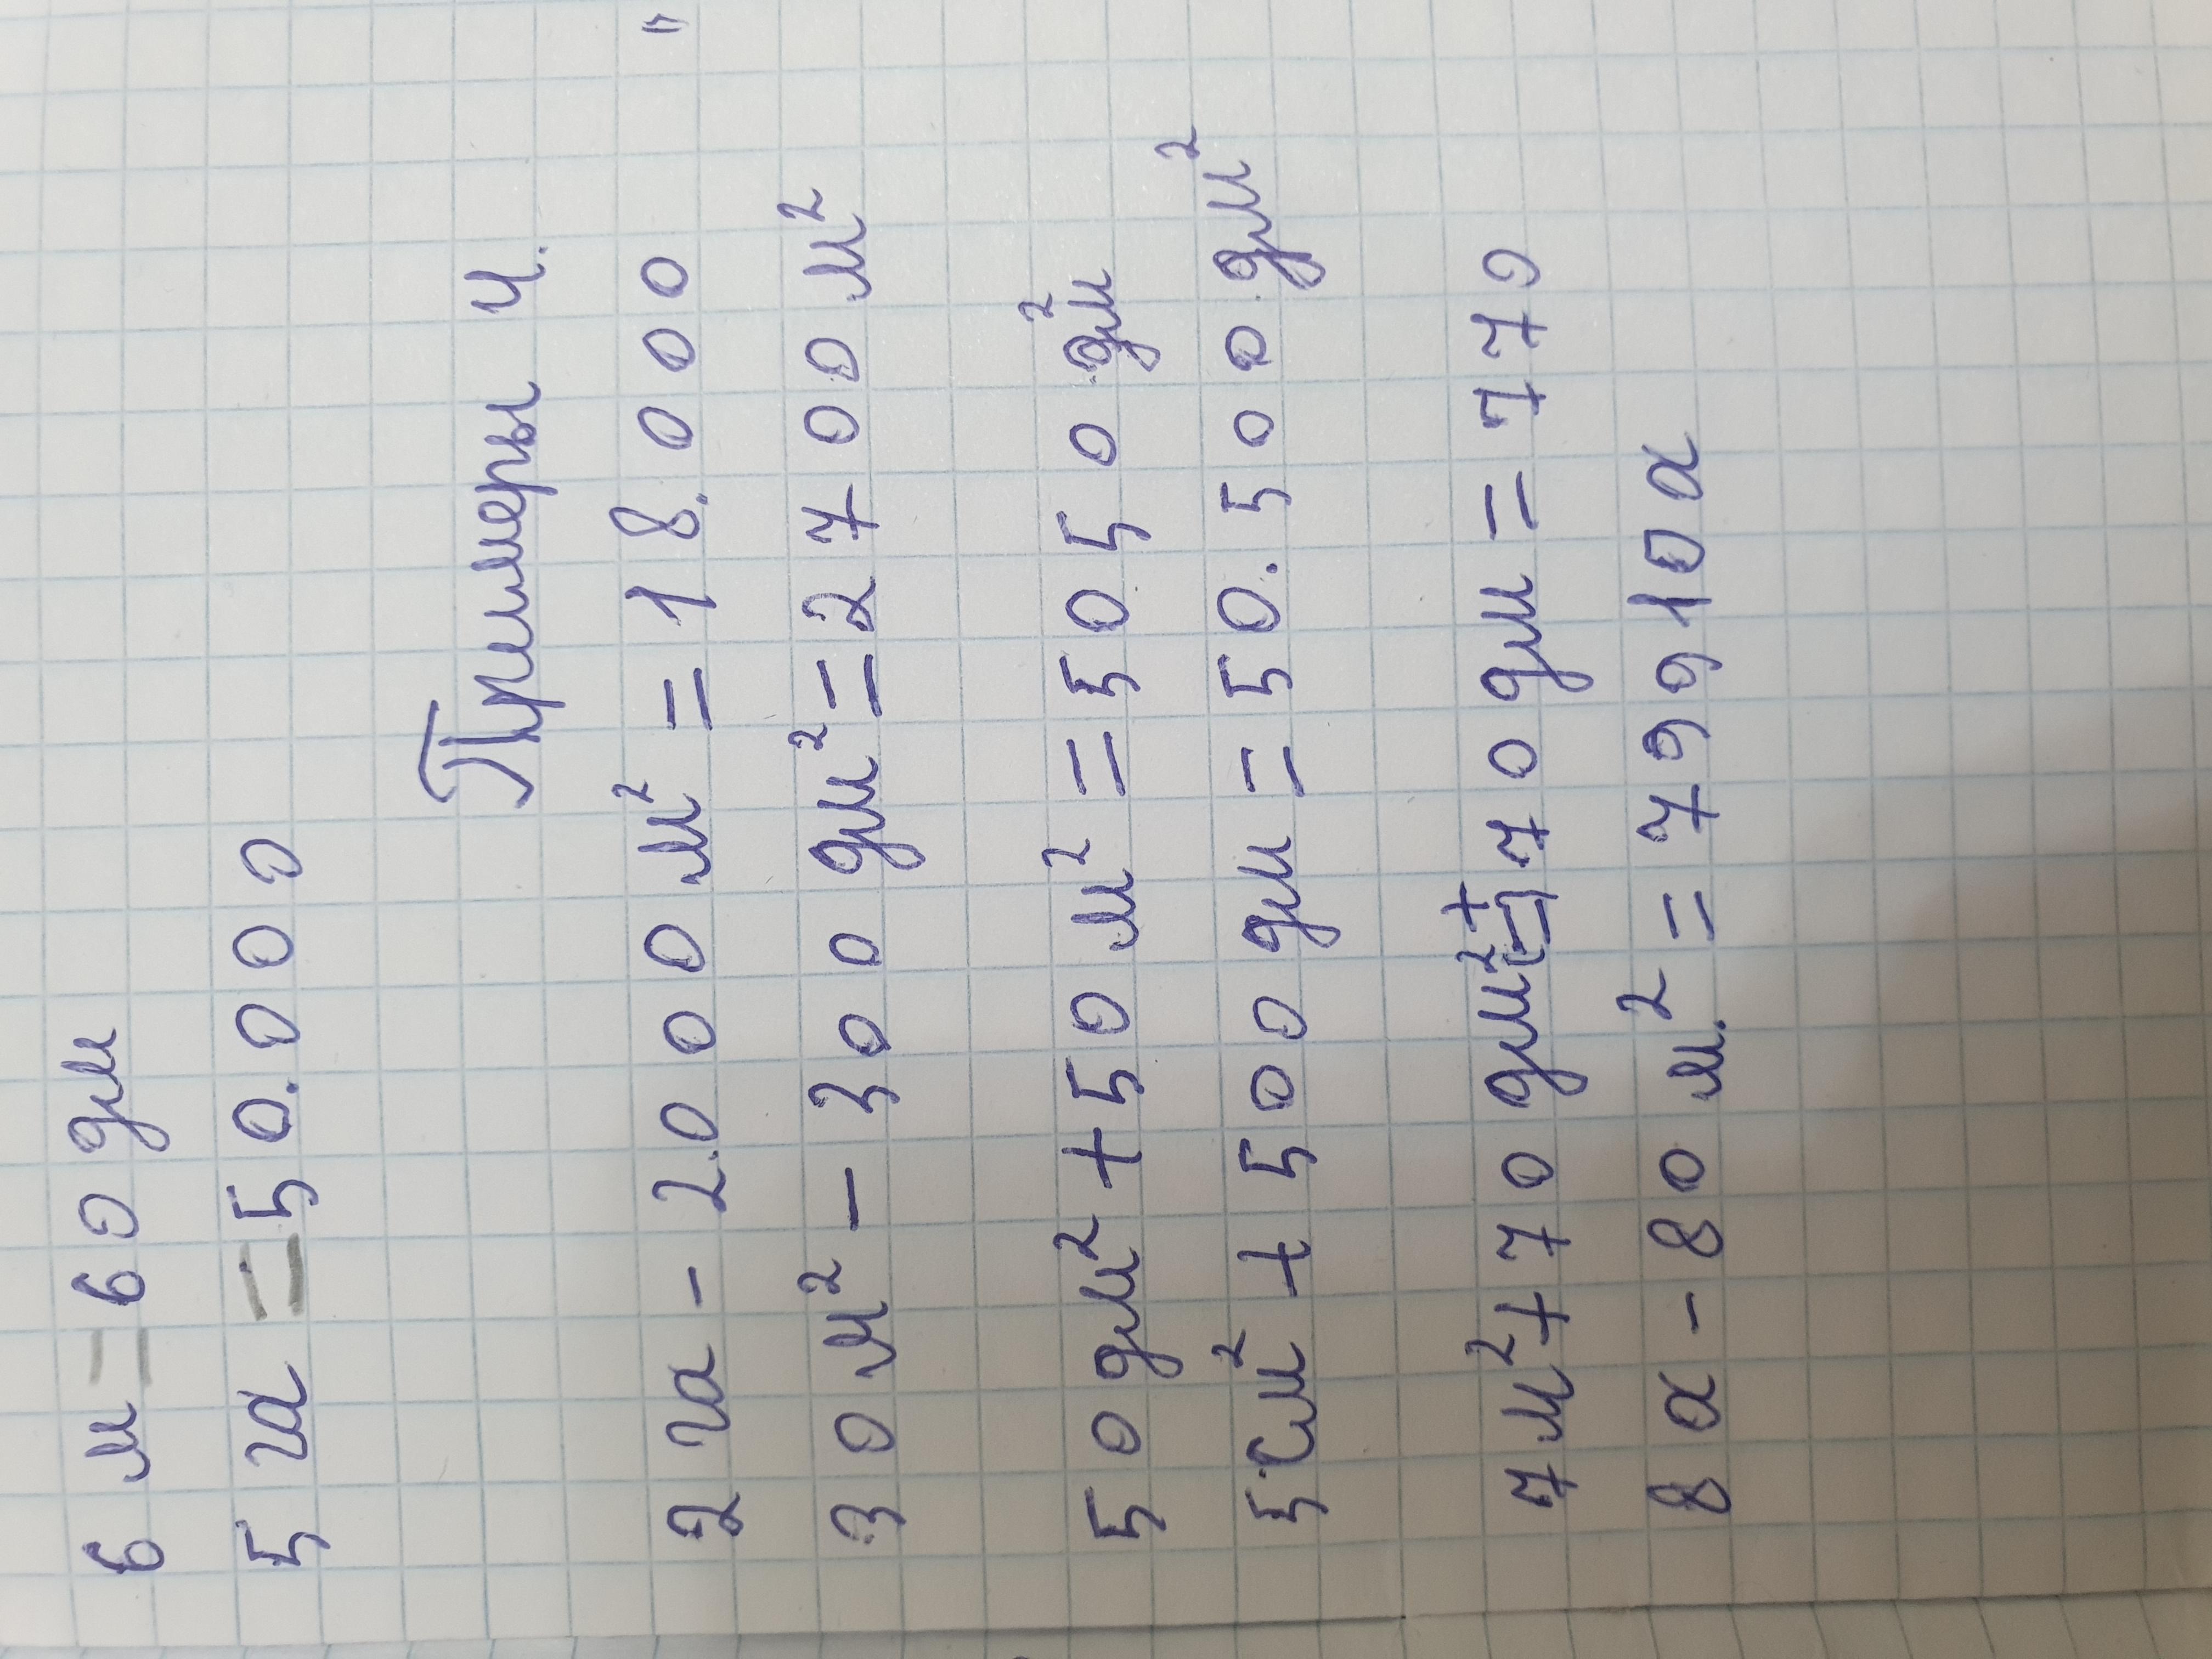 6 м = 60 дм
5 га = 50.000
Примеры 4.
2 га - 2.000 м² = 18.000 "
30 м² - 300 дм² = 2700 м²
50 дм² + 50 м² = 5050 дм²
5 см² + 500 дм = 50.500 дм²
7 м² + 70 дм² + 70 дм = 770
8 а - 80 м.² = 79910 а